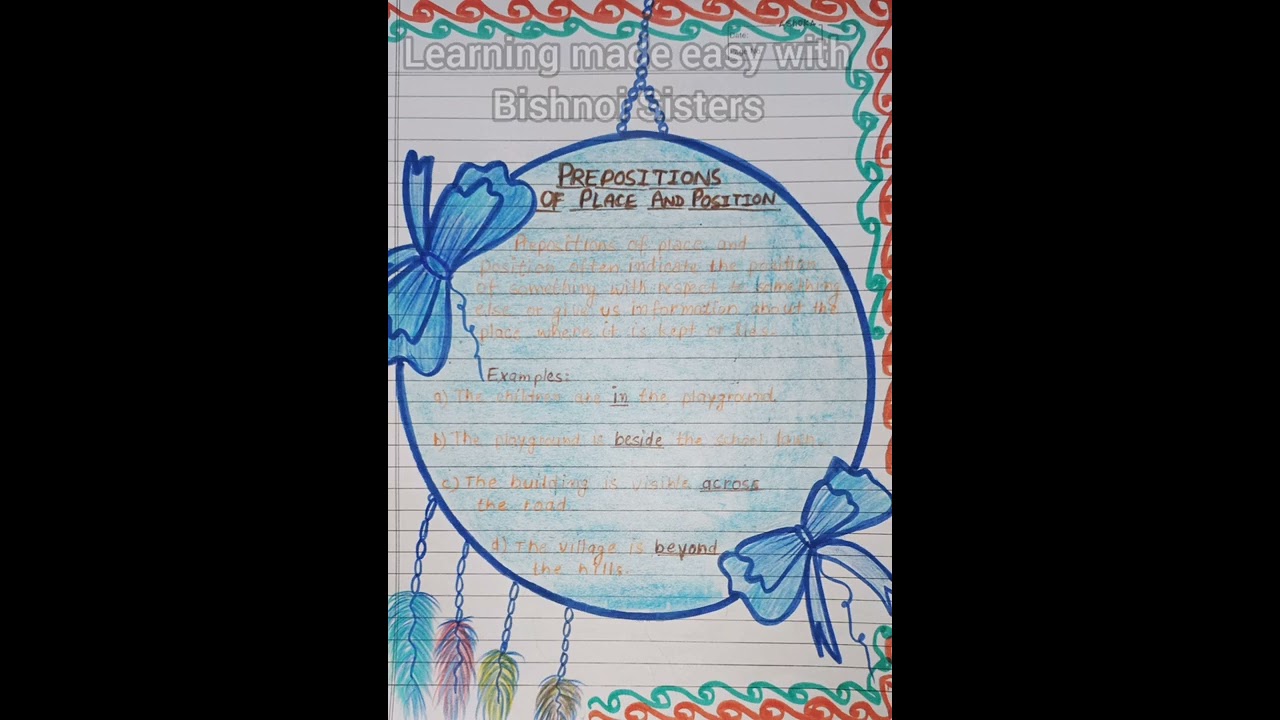 Learning made easy with
Bishnoi Sisters
Date:
Page No.
PREPOSITIONS
OF PLACE AND POSITION
Prepositions of place and
position often indicate the position
of something with respect to something
else or give us information about the
place where it is kept or lies.
Examples:
a) The children are in the playground.
b) The playground is beside the school lawn.
c) The building is visible across
the road.
d) The village is beyond
the hills.